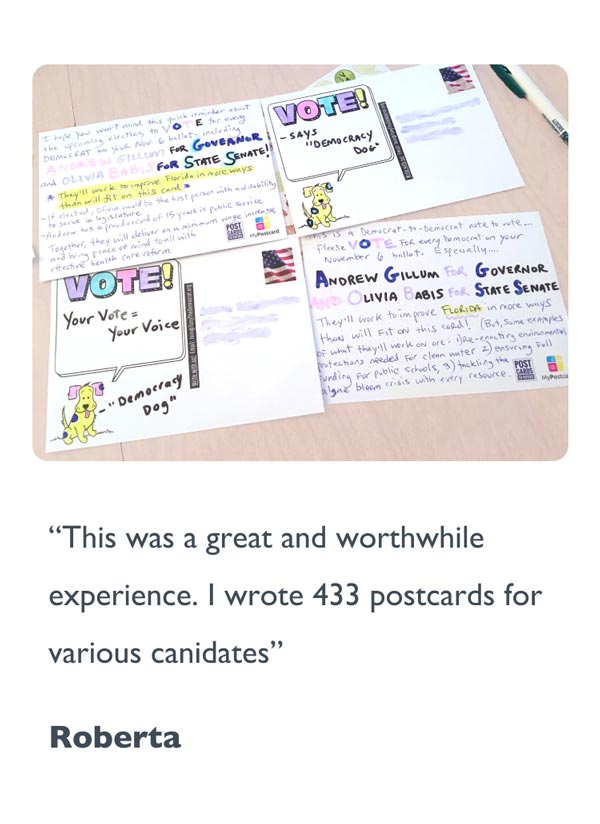 I hope you won't mind this quick reminder about
the upcoming election to VOTE for every
DEMOCRAT on your Nov. 6 ballot- including
ANDREW GILLUM FOR GOVERNOR
and OLIVIA BABIS FOR STATE SENATE!!
* They'll work to improve Florida in more ways
than will fit on this card! *
- If elected, Olivia would be the first person with a disability
to serve in legislature.
- Andrew has a proud record of 15 years in public service
Together, they will deliver on a minimum wage increase
and bring peace of mind to all with
effective health care reform.
POST
CARDS
MyPostcard
VOTE!
- SAYS
"DEMOCRACY
DOG"
VOTE!
YOUR VOTE =
YOUR VOICE
- "DEMOCRACY
DOG"
This is a Democrat-to-Democrat note to vote...
Please VOTE for every Democrat on your
November 6 ballot. Especially....
ANDREW GILLUM FOR GOVERNOR
AND OLIVIA BABIS FOR STATE SENATE
They'll work to improve FLORIDA in more ways
than will fit on this card! (But, some examples
of what they'll work on are: 1) re-enacting environmental
protections needed for clean water 2) ensuring full
funding for public schools, 3) tackling the
algae bloom crisis with every resource.
POST
CARDS
MyPostca
“This was a great and worthwhile
experience. I wrote 433 postcards for
various canidates”
Roberta